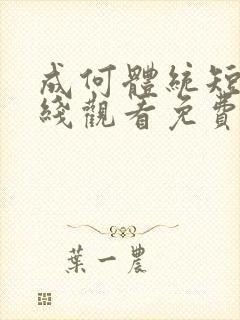 成何體統短
綫觀看免費
葉一農